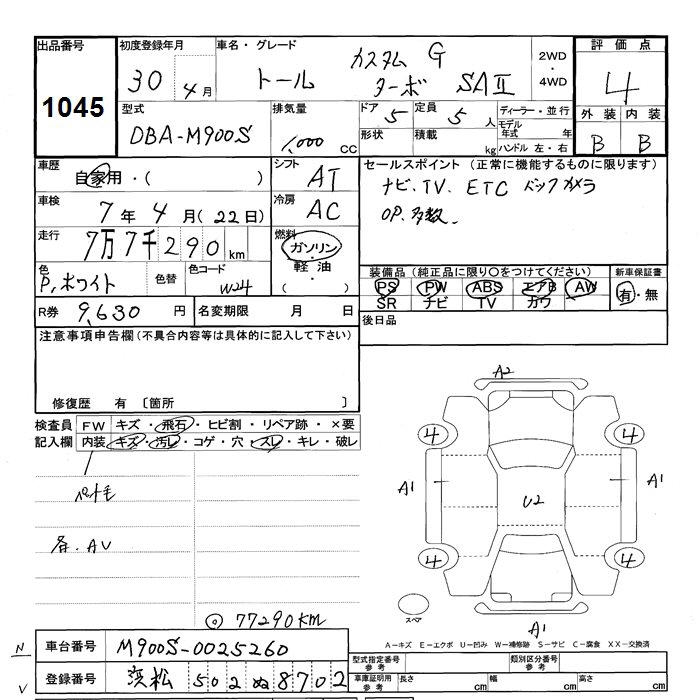 出品番号
1045
初度登録年月
30 4月
車名・グレード
カスタム G
トール ターボ SAII
2WD
・
4WD
評価点
4
外装 内装
B B
型式
DBA-M900S
排気量
1,000 CC
ドア 5
定員 5 人
形状
積載 kg
ディーラー・並行
モデル年式 年
ハンドル 左・右
車歴
自家用・( )
シフト
AT
車検
7年4月(22日)
冷房
AC
走行
7万7千290km
燃料
ガソリン
・
軽油
( )
色
P,ホワイト
色替
色コード
W24
R券 9,630 円
名変期限 月 日
セールスポイント(正常に機能するものに限ります)
ナビ、TV、ETC バックカメラ
OP.多数.
装備品(純正品に限り○をつけてください)
PS PW ABS エアB AW
SR ナビ TV カワ
新車保証書
有・無
後日品
注意事項申告欄(不具合内容等は具体的に記入して下さい)
修復歴 有 〔箇所 〕
検査員記入欄
FW キズ・飛石・ヒビ割・リペア跡・×要
内装 キズ・汚レ・コゲ・穴・スレ・キレ・破レ
ペット毛
各.AU
◎77290KM
N
V
車台番号 M900S-0025260
登録番号 浜松 502 ぬ 8702
A2
4
4
A1
U2
A1
4
4
スペア
A1
A-キズ E-エクボ U-凹み W-補修跡 S-サビ C-腐食 XX-交換済
型式指定番号
参考
類別区分番号
参考
車庫証明用
参考
長さ cm
幅 cm
高さ cm